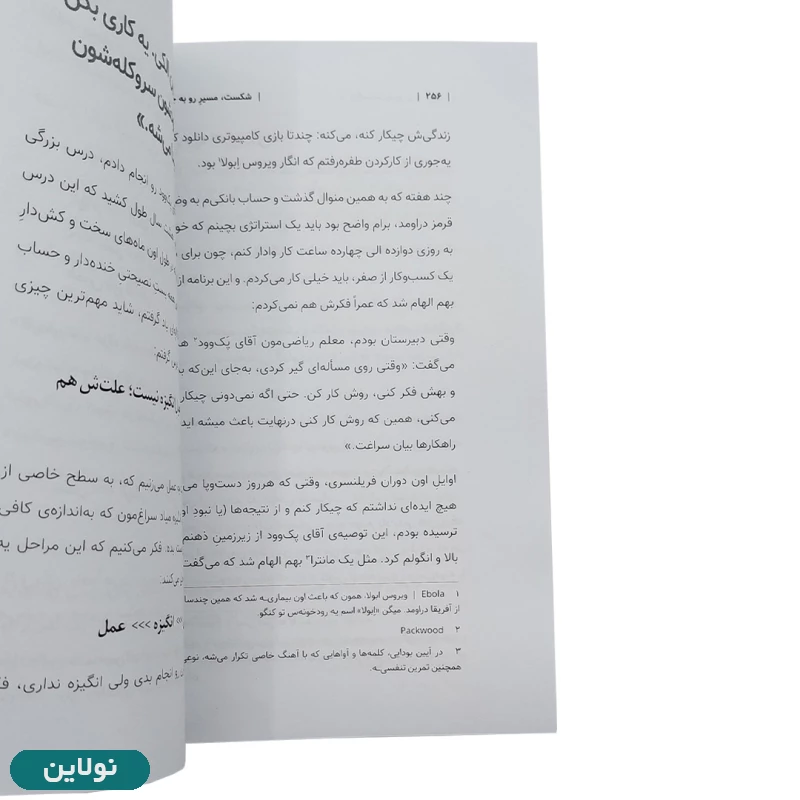 | ۲۵۶ | شکست، مسیرِ رو به
زندگی‌ش چیکار کنه، می‌کنه: چندتا بازی کامپیوتری دانلود
یه‌جوری از کارکردن طفره‌رفتم که انگار ویروس اِبولا۱ بود.
چند هفته که به همین منوال گذشت و حساب بانکی‌م به
قرمز دراومد، برام واضح بود باید یک استراتژی بچینم که
به روزی دوازده الی چهارده ساعت کار وادار کنم، چون برای
یک کسب‌وکار از صفر، باید خیلی کار می‌کردم. و این برنامه از
بهم الهام شد که عمراً فکرش هم نمی‌کردم:
وقتی دبیرستان بودم، معلم ریاضی‌مون آقای پَک‌وود۲
می‌گفت: «وقتی روی مسأله‌ای گیر کردی، به‌جای این‌که
و بهش فکر کنی، روش کار کن. حتی اگه نمی‌دونی چیکار
می‌کنی، همین که روش کار کنی درنهایت باعث میشه
راهکارها بیان سراغت.»
اوایل اون دوران فریلنسری، وقتی که هرروز دست‌وپا
هیچ ایده‌ای نداشتم که چیکار کنم و از نتیجه‌ها (یا نبودِ
ترسیده بودم، این توصیه‌ی آقای پک‌وود از زیرزمینِ ذهنم
بالا و انگولم کرد. مثل یک مانترا۳ بهم الهام شد که می‌گفت
۱ Ebola | ویروس ابولا، همون که باعث اون بیماری‌ـه شد که همین
از آفریقا دراومد. میگن «اِبولا» اسم یه رودخونه‌س تو کنگو.
۲ Packwood
۳ در آیین بودایی، کلمه‌ها و آواهایی که با آهنگ خاصی تکرار می‌شه، نوعی
همچنین تمرین تنفسی‌ـه.
یه کاری بکن
سروکله‌شون
می‌شه.»
رو انجام دادم، درس بزرگی
سال طول کشید که این درس
طول اون ماه‌های سخت و کش‌دارِ
نصیحتیِ خنده‌دار و حساب
یاد گرفتم، شاید مهم‌ترین چیزی
گرفتم:
انگیزه نیست؛ علت‌ش هم
عمل می‌زنیم که، به سطح خاصی از
میاد سراغ‌مون که به‌اندازه‌ی کافی
فکر می‌کنیم که این مراحل یه
انگیزه >>> عمل
رو انجام بدی ولی انگیزه نداری،
نولاین